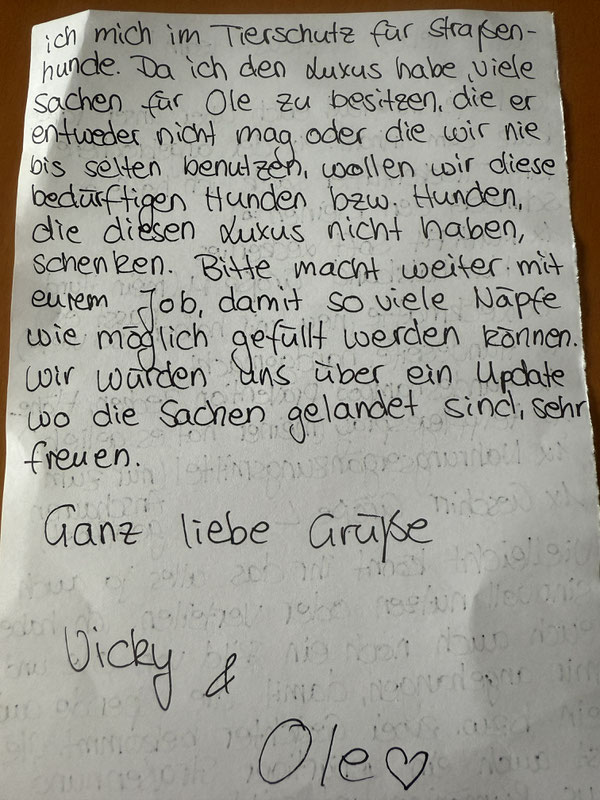 ich mich im Tierschutz für Straßen-
hunde. Da ich den Luxus habe, viele
Sachen für Ole zu besitzen, die er
entweder nicht mag oder die wir nie
bis selten benutzen, wollen wir diese
bedürftigen Hunden bzw. Hunden,
die diesen Luxus nicht haben,
schenken. Bitte macht weiter mit
eurem Job, damit so viele Näpfe
wie möglich gefüllt werden können.
Wir würden uns über ein Update
wo die Sachen gelandet sind, sehr
freuen.
Ganz liebe Grüße
Vicky
&
Ole ♡